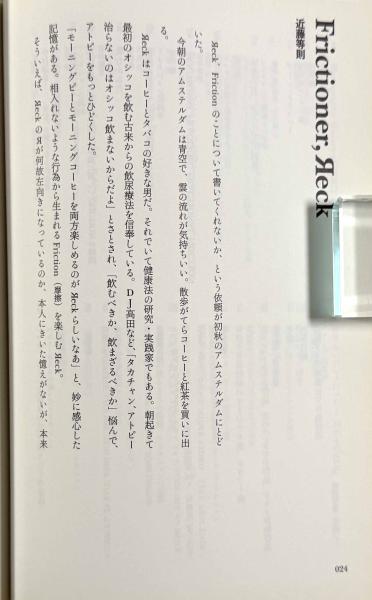 Frictioner, Яeck
近藤等則
Яeck、Friction のことについて書いてくれないか、という依頼が初秋のアムステルダムにとど
いた。
今朝のアムステルダムは青空で、雲の流れが気持ちいい。散歩がてらコーヒーと紅茶を買いに出
る。
Яeck はコーヒーとタバコの好きな男だ。それでいて健康法の研究・実践家でもある。朝起きて
最初のオシッコを飲む古来からの飲尿療法を信奉している。ＤＪ高田など、「タカチャン、アトピー
治らないのはオシッコ飲まないからだよ」とさとされ、「飲むべきか、飲まざるべきか」悩んで、
アトピーをもっとひどくした。
「モーニングピーとモーニングコーヒーを両方楽しめるのが Яeck らしいなあ」と、妙に感心した
記憶がある。相入れないような行為から生まれる Friction（摩擦）を楽しむ Яeck。
そういえば、Яeck の Я が何故左向きになっているのか、本人にきいた憶えがないが、本来
024